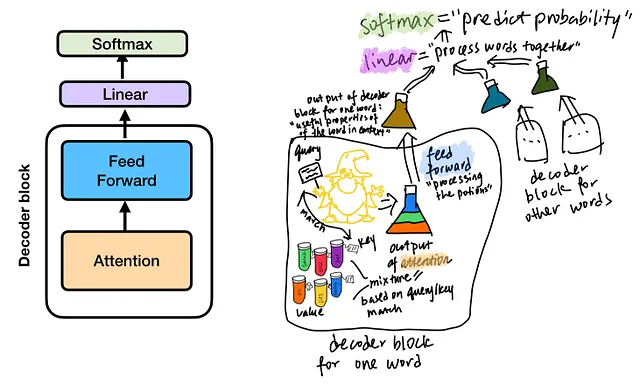 Softmax
Linear
Feed
Forward
Attention
Decoder block
softmax = "predict probability"
linear = "process words together"
output of decoder
block for one word:
"useful properties of
of the word in context"
query
match
key
value
feed
forward
"processing
the potions"
output
of attention
mixture
based on query/key
match
decoder block
for one word
decoder
block for
other words